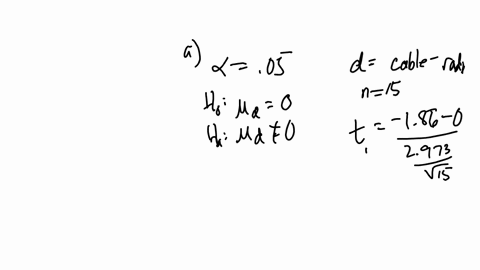 a) α = .05
H₀: μd = 0
Hₐ: μd ≠ 0
d = cable - radio
n = 15
t = -1.86 - 0
2.973
√15